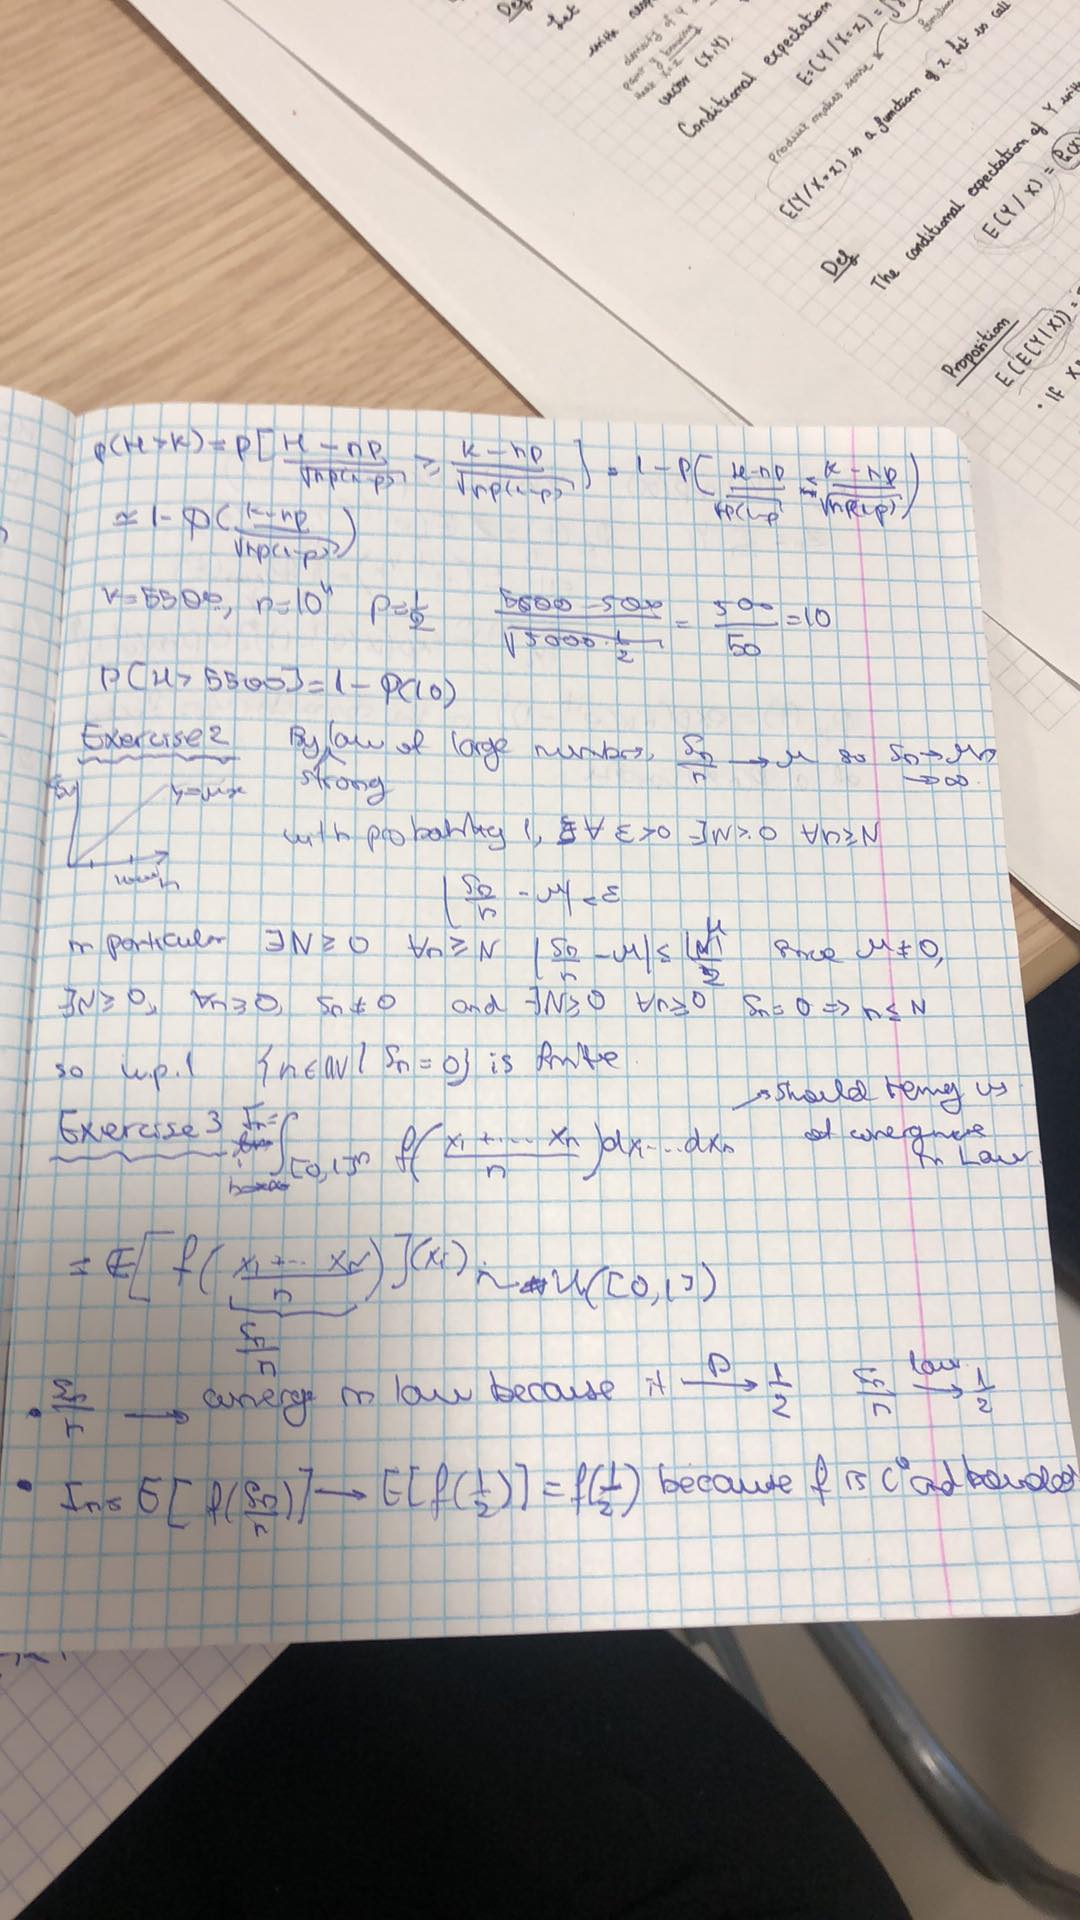 Def
Let
vector (X,Y).
Conditional expectation
E=(Y/X=x) =
Produce makes sense
E(Y/X=x) is a function of x let us call
Def
The conditional expectation of Y with
E(Y/X) =
Proposition
E(E(Y/X)) =
. IF X
P(H>k) = P[(H-np)/√(np(1-p)) ≥ (k-np)/√(np(1-p))] = 1-P((H-np)/√(np(1-p)) ≤ (k-np)/√(np(1-p)))
≈ 1-Φ((k-np)/√(np(1-p)))
k=5500, n=10⁴ p=1/2 (5500-5000)/√(5000·1/2) = 500/50 = 10
P[H>5500]=1-Φ(10)
Exercise 2 By strong law of large numbers, Sn/n → μ so Sn → μn → ∞
y=μx
with probability 1, ∀ε>0 ∃N≥0 ∀n≥N
|Sn/n - μ| ≤ ε
in particular ∃N≥0 ∀n≥N |Sn/n - μ| ≤ |μ|/2 since μ≠0,
∃N≥0, ∀n≥0, Sn≠0 and ∃N≥0 ∀n≥0 Sn=0 => n≤N
so w.p.1 {n∈ℕ/ Sn=0} is finite.
Exercise 3 In= ∫[0,1]ⁿ f((x₁+...xn)/n)dx₁...dxn → should remind us of convergence in Law
= E[f((x₁+...xn)/n)] (xi)i ~ U([0,1])
Sn/n
• Sn/n → converg in law because it →P 1/2 Sn/n →law 1/2
• In= E[f(Sn/n)] → E[f(1/2)] = f(1/2) because f is C⁰ and bounded